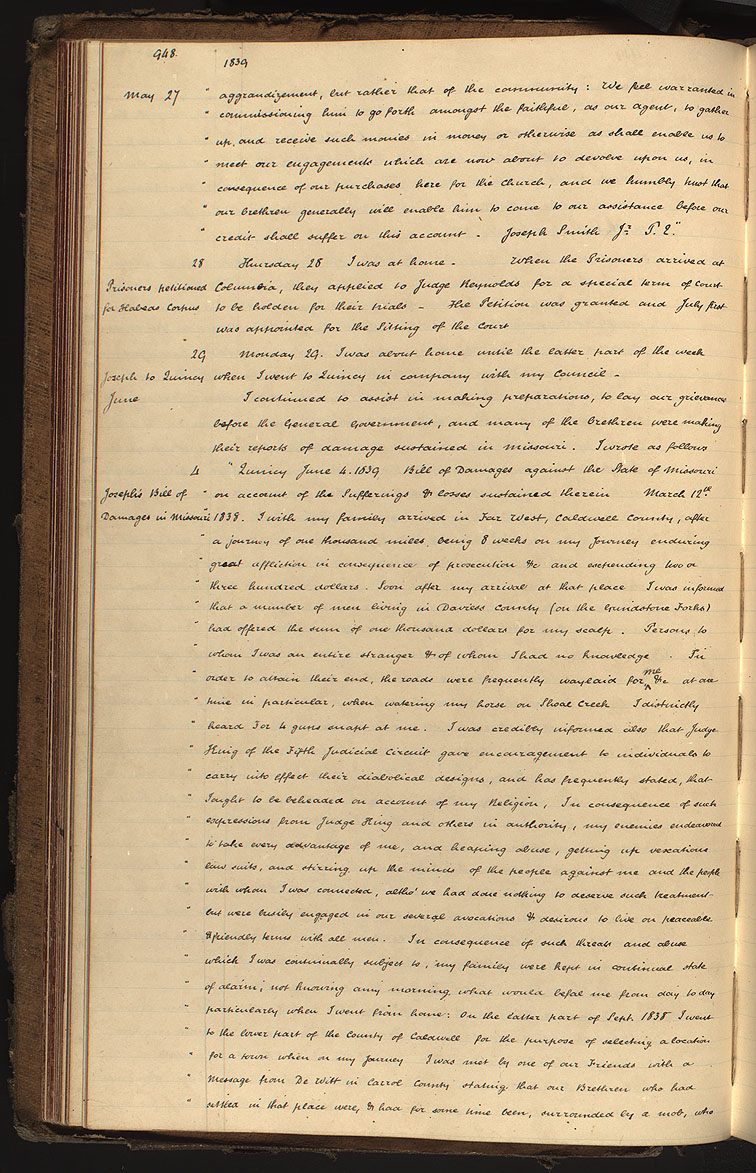 948.
1839
May 27 " aggrandizement, but rather that of the community: We feel warranted in
" commissioning him to go forth amongst the faithful, as our agent, to gather
" up, and receive such monies in money or otherwise as shall enable us to
" meet our engagements which are now about to devolve upon us, in
" consequence of our purchases here for the Church, and we humbly trust that
" our brethren generally will enable him to come to our assistance before our
" credit shall suffer on this account. Joseph Smith Jr. P. E."
28 Thursday 28 I was at home. When the Prisoners arrived at
Prisoners petitioned Columbia, they applied to Judge Reynolds for a special term of Court
for Habeas Corpus to be holden for their trials. The Petition was granted and July first
was appointed for the Sitting of the Court
29 Monday 29. I was about home until the latter part of the week
Joseph to Quincy when I went to Quincy in company with my Council.
June I continued to assist in making preparations, to lay our grievances
before the General Government, and many of the brethren were making
their reports of damage sustained in Missouri. I wrote as follows
4 " Quincy June 4. 1839 Bill of Damages against the State of Missouri
Joseph's Bill of " on account of the Sufferings & losses sustained therein March 12th
Damages in Missouri " 1838. I with my family arrived in Far West, Caldwell County, after
" a journey of one thousand miles, being 8 weeks on my Journey enduring
" great affliction in consequence of prosecution &c and expending two or
" three hundred dollars. Soon after my arrival at that place I was informed
" that a number of men living in Daviess County (on the Grindstone Forks)
" had offered the sum of one thousand dollars for my scalp. Persons to
" whom I was an entire stranger & of whom I had no knowledge. In
" order to attain their end, the roads were frequently waylaid for me &c at one
" time in particular, when watering my horse on Shoal Creek I distinctly
" heard 3 or 4 guns snapt at me. I was credibly informed also that Judge
" King of the Fifth Judicial Circuit gave encouragement to individuals to
" carry into effect their diabolical designs, and has frequently stated, that
" I ought to be beheaded on account of my Religion, In consequence of such
" expressions from Judge King and others in authority, my enemies endeavored
" to take every advantage of me, and heaping abuse, getting up vexatious
" law suits, and stirring up the minds of the people against me and the people
" with whom I was connected, altho' we had done nothing to deserve such treatment
" but were busily engaged in our several avocations & desirous to live on peaceable
" & friendly terms with all men. In consequence of such threats and abuse
" which I was continually subject to, my family were kept in continual state
" of alarm, not knowing any morning what would befal me from day to day
" particularly when I went from home: On the latter part of Sept. 1838 I went
" to the lower part of the County of Caldwell for the purpose of selecting a location
" for a town when on my Journey I was met by one of our Friends with a
" message from De Witt in Carrol County stating that our Brethren who had
" settled in that place were, & had for some time been, surrounded by a mob, who